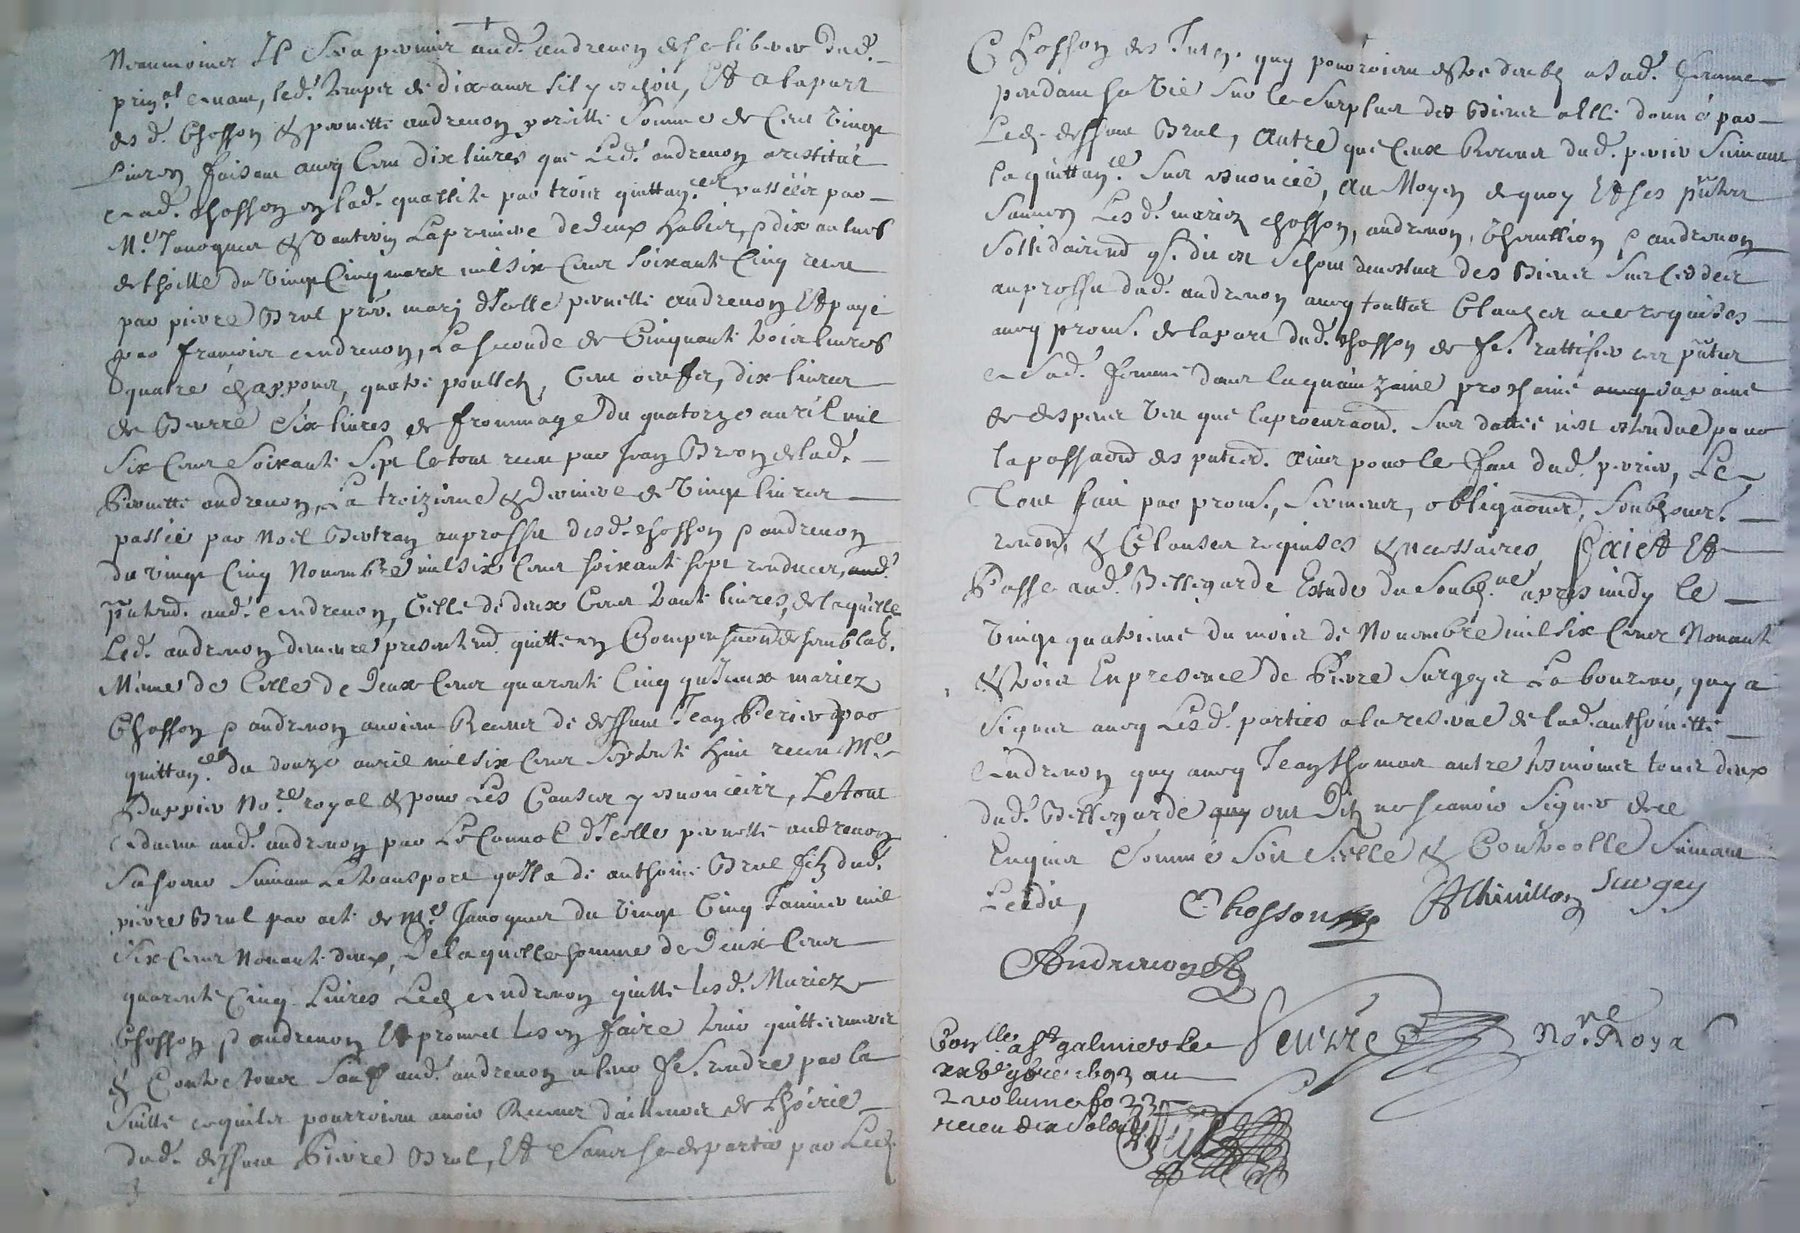 Neanmoings Il sera permier aud. andrenon de se liberer dud.
prin.al avant led. temps de dix ans sil y eschoit, Et a la part
des d. Chosson & pernette andrenon pareille somme de Cent vingt
Livres faisant avec Cent dix livres que Led. andrenon a restitué
aud. Chosson en lad. quallité par trois quittan.ces passées par
M.e Janoguer & Dantein La premiere de deux habis, & dix aulnes
de thoille du vingt Cinq mars mil six Cent soixante Cinq receu
par pierre Brul pre. mary d'Icelle pernette andrenon Et payé
par francois andrenon, La seconde de Cinquante trois livres
quatre chappons, quatre poullets, Cent oeufs, dix livres
de Beurre six livres de frommage du quatorze avril mil
six Cent soixante sept le tout receu par Jean Brun de lad.
Pernette andrenon, La troizieme & derniere de vingt livres
passée par Noel Bertran au proffit desd. Chosson & andrenon
du vingt Cinq Novembre mil six Cent soixante sept rendues
p̃ntem. aud. andrenon, Celle de deux Cent trante livres, de laquelle
Led. andrenon demeure presentem. quitte en Compensaon de semblab.
Mesme de Celle de deux Cent quarente Cinq qu'Iceux mariez
Chosson & andrenon avoient Receues de deffunt Jean Perier par
quittan.ce du douze avril mil six Cent septente huit receu M.e
Duppier No.re royal & pour Les Causes y enoncées, Le tout
advenu aud. andrenon par Le Cannal d'Icelle pernette andrenon
sa soeur suivant Le transport qu'Il a de anthoine Brul fils dud.
pierre Brul par acte de M.e Janoguer du vingt Cinq Janvier mil
six Cent Nonante deux, De laquelle somme de deux Cent
quarente Cinq Livres Led. andrenon quitte lesd. Mariez
Chosson & andrenon Et promet les en faire tenir quittes envers
& Contre tous sauf aud. andrenon a leur fe. rendre par la
suitte ce quils pourroient avoir Receus d'ailleurs de l'hoirie
dud. deffunt Pierre Brul, Et sans se departir par Led.
Chosson des Jnts. quy pourroient estre deubs a sad. femme
pendant sa vie sur le surplus des Biens a elle donné par
Led. deffunt Brul, autre que Ceux Receus dud. perier suivant
la quittan.ce sus enoncée, Au Moyen de quoy Et ses p̃ntes
Lesd. mariez Chosson, andrenon, Theuillion & andrenon
sollidairem. des Biens sus ceddes
au proffit dud. andrenon avec touttes Clauses a ce requises
avec prom. de la part dud. Chosson de fe. rattifier ces p̃ntes
a sad. femme dans la quainzaine prochaine a paine
de despens veu que la procuraon. sus dattée n'est estendue pour
la passaon. des p̃ntes. ains pour le fait dud. perier, Le
Tout fait par prom., serment, obligaon, soubzmis.
renon. & Clauses requises & necessaires, Faict Et
Passe aud. Bellegarde Estude du soubz.ne apres midy le
vingt quatrieme du mois de Novembre mil six Cent Nonante
& trois En presence de Pierre Surgeys Laboureur, quy a
signez avec Lesd. parties a la reserve de lad. anthoinette
andrenon quy avec Jean thomas autre tesmoins tous deux
dud. Bellegarde ont dit ne scavoir signer de ce
Enquis & sommé soit scellé & Controollé suivant
Ledit,
Chosson
Atheuillon
Surgey
Andrenon
No.re Royal
Con.lle a s.t galmier le
au
2 volume fo 23
receu dix solz